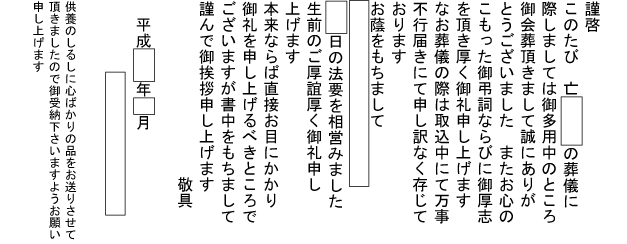 謹啓
このたび　亡　の葬儀に
際しましては御多用中のところ
御会葬頂きまして誠にありが
とうございました　またお心の
こもった御弔詞ならびに御厚志
を頂き厚く御礼申し上げます
なお葬儀の際は取込中にて万事
不行届きにて申し訳なく存じて
おります
お蔭をもちまして
日の法要を相営みました
生前のご厚誼厚く御礼申し
上げます
本来ならば直接お目にかかり
御礼を申し上げるべきところで
ございますが書中をもちまして
謹んで御挨拶申し上げます
敬具
平成　年　月
供養のしるしに心ばかりの品をお送りさせて
頂きましたので御受納下さいますようお願い
申し上げます